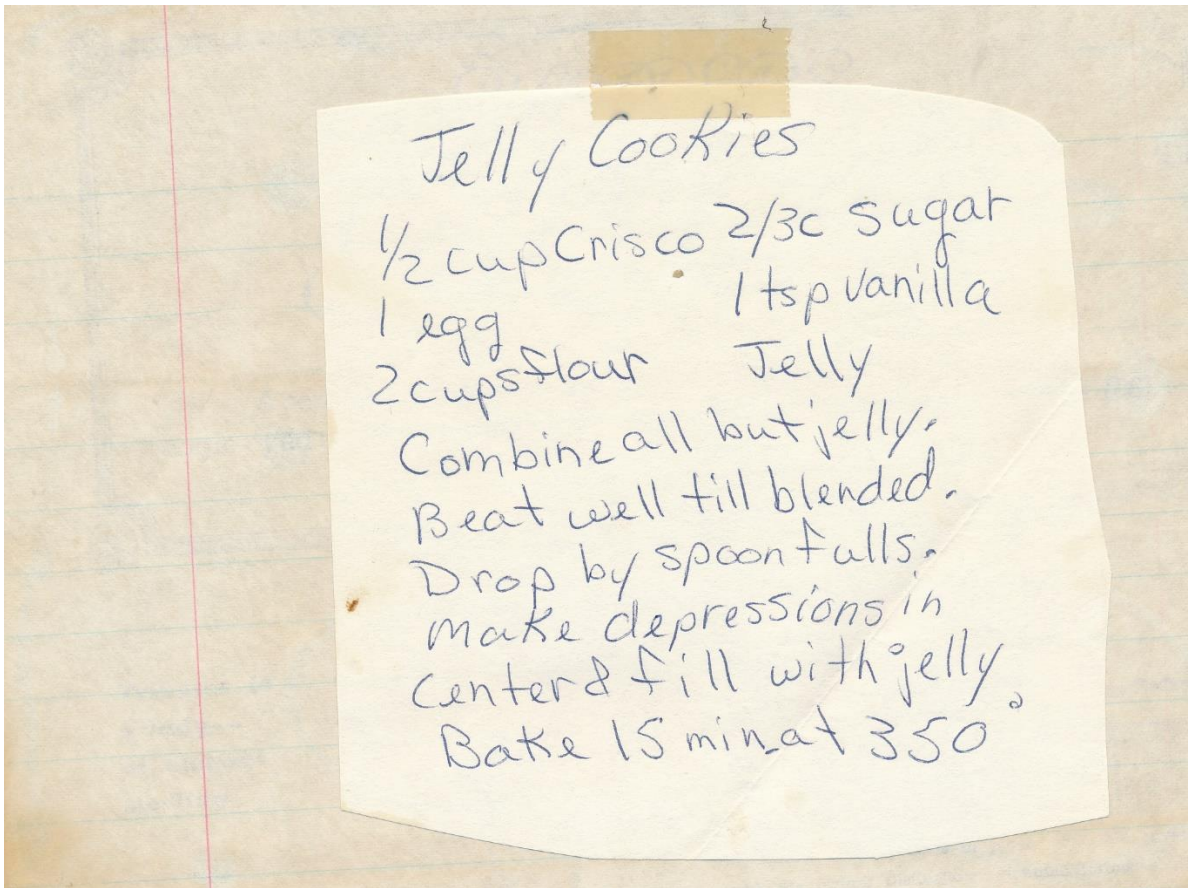 Jelly Cookies
1/2 cup Crisco 2/3c sugar
1 egg 1 tsp vanilla
2 cups flour Jelly
Combine all but jelly.
Beat well till blended.
Drop by spoonfulls.
Make depressions in
center & fill with jelly
Bake 15 min. at 350°